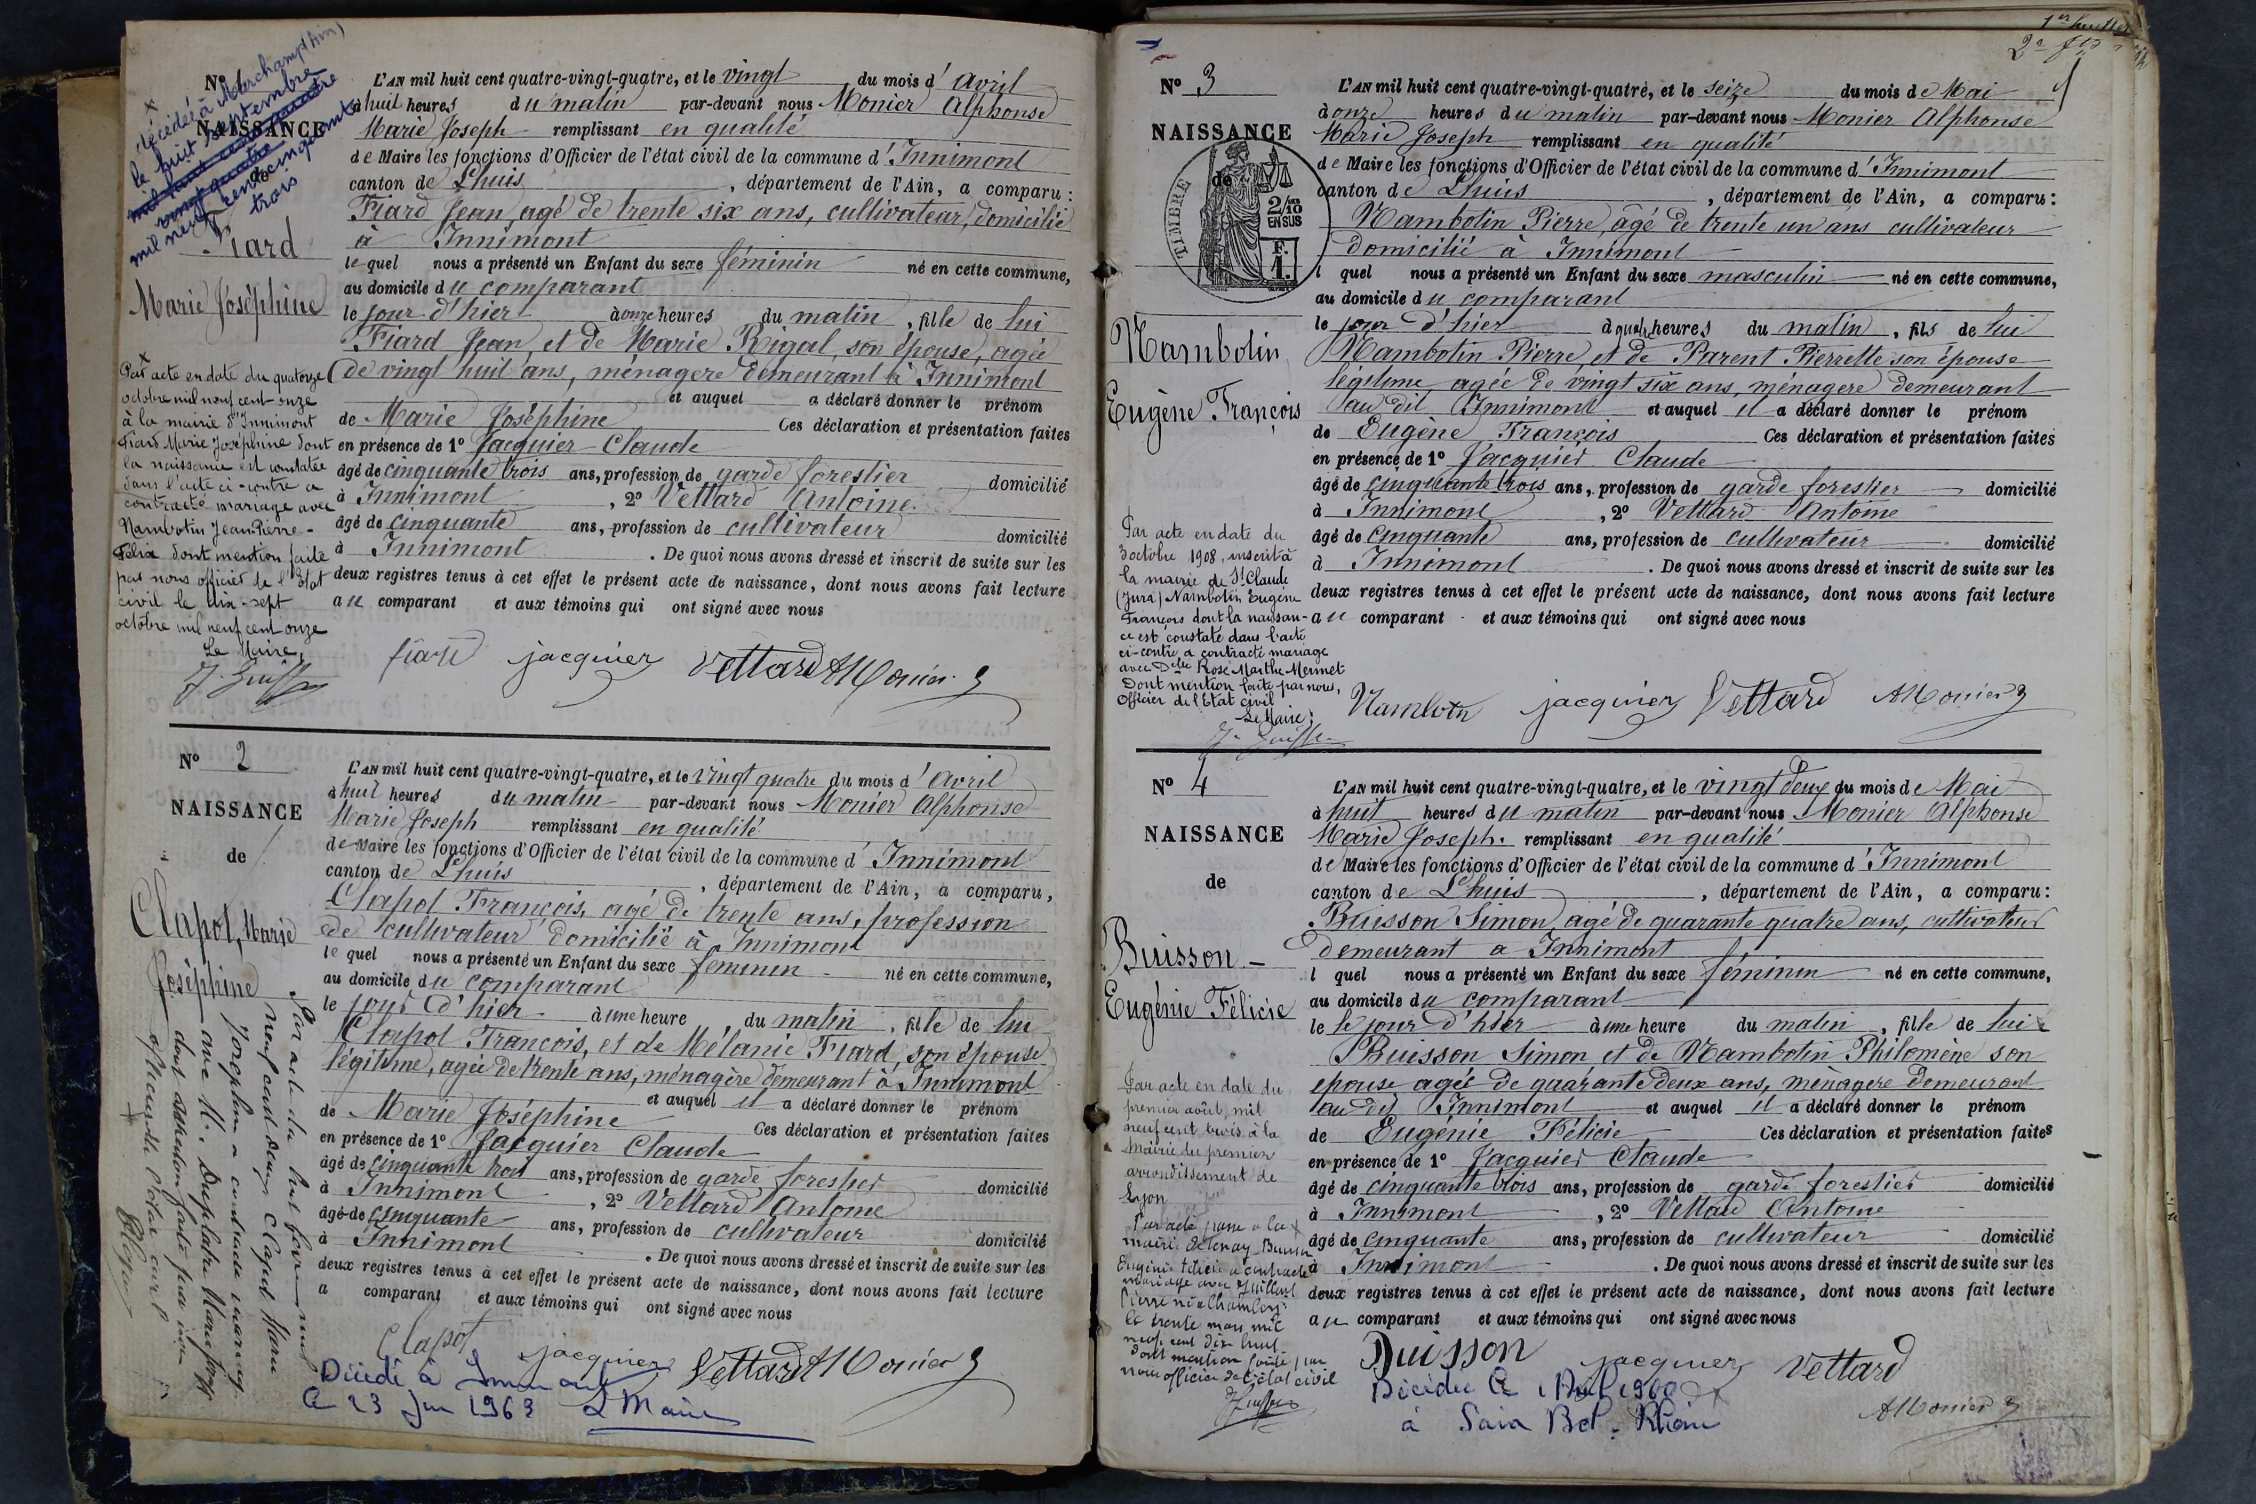 N° 1
NAISSANCE
de
décédée à Marchamp (Ain)
le huit septembre
mil neuf cent cinquante
trois
Fiard
Marie Joséphine
L'AN mil huit cent quatre-vingt-quatre, et le vingt du mois d'Avril
à huit heures du matin par-devant nous Monier Alphonse
Marie Joseph remplissant en qualité
de Maire les fonctions d'Officier de l'état civil de la commune d'Innimont
canton de Lhuis, département de l'Ain, a comparu :
Fiard Jean, agé de trente six ans, cultivateur, domicilié
à Innimont
le quel nous a présenté un Enfant du sexe féminin né en cette commune,
au domicile du comparant
le jour d'hier à onze heures du matin, fille de lui
Fiard Jean et de Marie Rigal, son épouse, agée
de vingt huit ans, ménagère demeurant à Innimont
et auquel a déclaré donner le prénom
de Marie Joséphine Ces déclaration et présentation faites
en présence de 1° Jacquier Claude
âgé de cinquante trois ans, profession de garde forestier domicilié
à Innimont, 2° Vettard Antoine
âgé de cinquante ans, profession de cultivateur domicilié
à Innimont. De quoi nous avons dressé et inscrit de suite sur les
deux registres tenus à cet effet le présent acte de naissance, dont nous avons fait lecture
au comparant et aux témoins qui ont signé avec nous
fiard jacquier Vettard AMonier
Par acte en date du quatorze
octobre mil neuf cent onze
à la mairie d'Innimont
Fiard Marie Joséphine dont
la naissance est constatée
dans l'acte ci-contre a
contracté mariage avec
Nambotin Jean Pierre-
Félix dont mention faite
par nous officier de l'état
civil le dix-sept
octobre mil neuf cent onze
Le Maire,
N° 2
NAISSANCE
de
Clapot, Marie
Joséphine
L'AN mil huit cent quatre-vingt-quatre, et le vingt quatre du mois d'Avril
à huit heures du matin par-devant nous Monier Alphonse
Marie Joseph remplissant en qualité
de Maire les fonctions d'Officier de l'état civil de la commune d'Innimont
canton de Lhuis, département de l'Ain, a comparu,
Clapot François, agé de trente ans, profession
de cultivateur domicilié à Innimont
le quel nous a présenté un Enfant du sexe féminin né en cette commune,
au domicile du comparant
le jour d'hier à une heure du matin, fille de lui
Clapot François, et de Mélanie Fiard, son épouse
légitime, agée de trente ans, ménagère demeurant à Innimont
et auquel il a déclaré donner le prénom
de Marie Joséphine Ces déclaration et présentation faites
en présence de 1° Jacquier Claude
âgé de cinquante trois ans, profession de garde forestier domicilié
à Innimont, 2° Vettard Antoine
âgé de cinquante ans, profession de cultivateur domicilié
à Innimont. De quoi nous avons dressé et inscrit de suite sur les
deux registres tenus à cet effet le présent acte de naissance, dont nous avons fait lecture
a comparant et aux témoins qui ont signé avec nous
Clapot jacquier Vettard AMonier
Décédé à Innimont
le 23 1963 Le Maire
Par acte du huit février mil
neuf cent deux Clapot Marie
Joséphine a contracté mariage
avec M. Marie Joseph
dont mention faite par nous
officier de l'état civil
N° 3
NAISSANCE
de
TIMBRE
2/10
EN SUS
F.
1.
Nambotin
Eugène François
L'AN mil huit cent quatre-vingt-quatre, et le seize du mois de Mai
à onze heures du matin par-devant nous Monier Alphonse
Marie Joseph remplissant en qualité
de Maire les fonctions d'Officier de l'état civil de la commune d'Innimont
canton de Lhuis, département de l'Ain, a comparu :
Nambotin Pierre, âgé de trente un ans cultivateur
domicilié à Innimont
l quel nous a présenté un Enfant du sexe masculin né en cette commune,
au domicile du comparant
le jour d'hier à quatre heures du matin, fils de lui
Nambotin Pierre et de Parent Pierrette son épouse
légitime agée de vingt six ans, ménagère demeurant
au dit Innimont et auquel il a déclaré donner le prénom
de Eugène François Ces déclaration et présentation faites
en présence de 1° Jacquier Claude
âgé de cinquante trois ans, profession de garde forestier domicilié
à Innimont, 2° Vettard Antoine
âgé de cinquante ans, profession de cultivateur domicilié
à Innimont. De quoi nous avons dressé et inscrit de suite sur les
deux registres tenus à cet effet le présent acte de naissance, dont nous avons fait lecture
au comparant et aux témoins qui ont signé avec nous
Nambotin jacquier Vettard AMonier
Par acte en date du
3 octobre 1908, inscrit à
la mairie de St Claude
(Jura) Nambotin Eugène
François dont la naissan-
ce est constaté dans l'acte
ci-contre a contracté mariage
avec Delle Rose Marthe Mermet
Dont mention faite par nous,
Officier de l'Etat civil
Le Maire:
N° 4
NAISSANCE
de
Buisson
Eugénie Félicie
L'AN mil huit cent quatre-vingt-quatre, et le vingt deux du mois de Mai
à huit heures du matin par-devant nous Monier Alphonse
Marie Joseph. remplissant en qualité
de Maire les fonctions d'Officier de l'état civil de la commune d'Innimont
canton de Lhuis, département de l'Ain, a comparu :
Buisson Simon, agé de quarante quatre ans, cultivateur
demeurant a Innimont
l quel nous a présenté un Enfant du sexe féminin né en cette commune,
au domicile du comparant
le le jour d'hier à une heure du matin, fille de lui
Buisson Simon et de Nambotin Philomène son
epouse agée de quarante deux ans, ménagère demeurant
au dit Innimont et auquel il a déclaré donner le prénom
de Eugénie Félicie Ces déclaration et présentation faites
en présence de 1° Jacquier Claude
âgé de cinquante trois ans, profession de garde forestier domicilié
à Innimont, 2° Vettard Antoine
âgé de cinquante ans, profession de cultivateur domicilié
à Innimont. De quoi nous avons dressé et inscrit de suite sur les
deux registres tenus à cet effet le présent acte de naissance, dont nous avons fait lecture
au comparant et aux témoins qui ont signé avec nous
Buisson jacquier Vettard
AMonier
Décédée le 1960
à Sain Bel. Rhône
Par acte en date du
premier août, mil
neuf cent trois à la
Mairie du premier
arrondissement de
Lyon
Par acte passé à la
mairie Buisson
Eugénie Félicie a contracté
mariage avec
Pierre né à Chambéry
le trente mars mil
neuf cent dix huit
dont mention faite par
nous officier de l'état civil